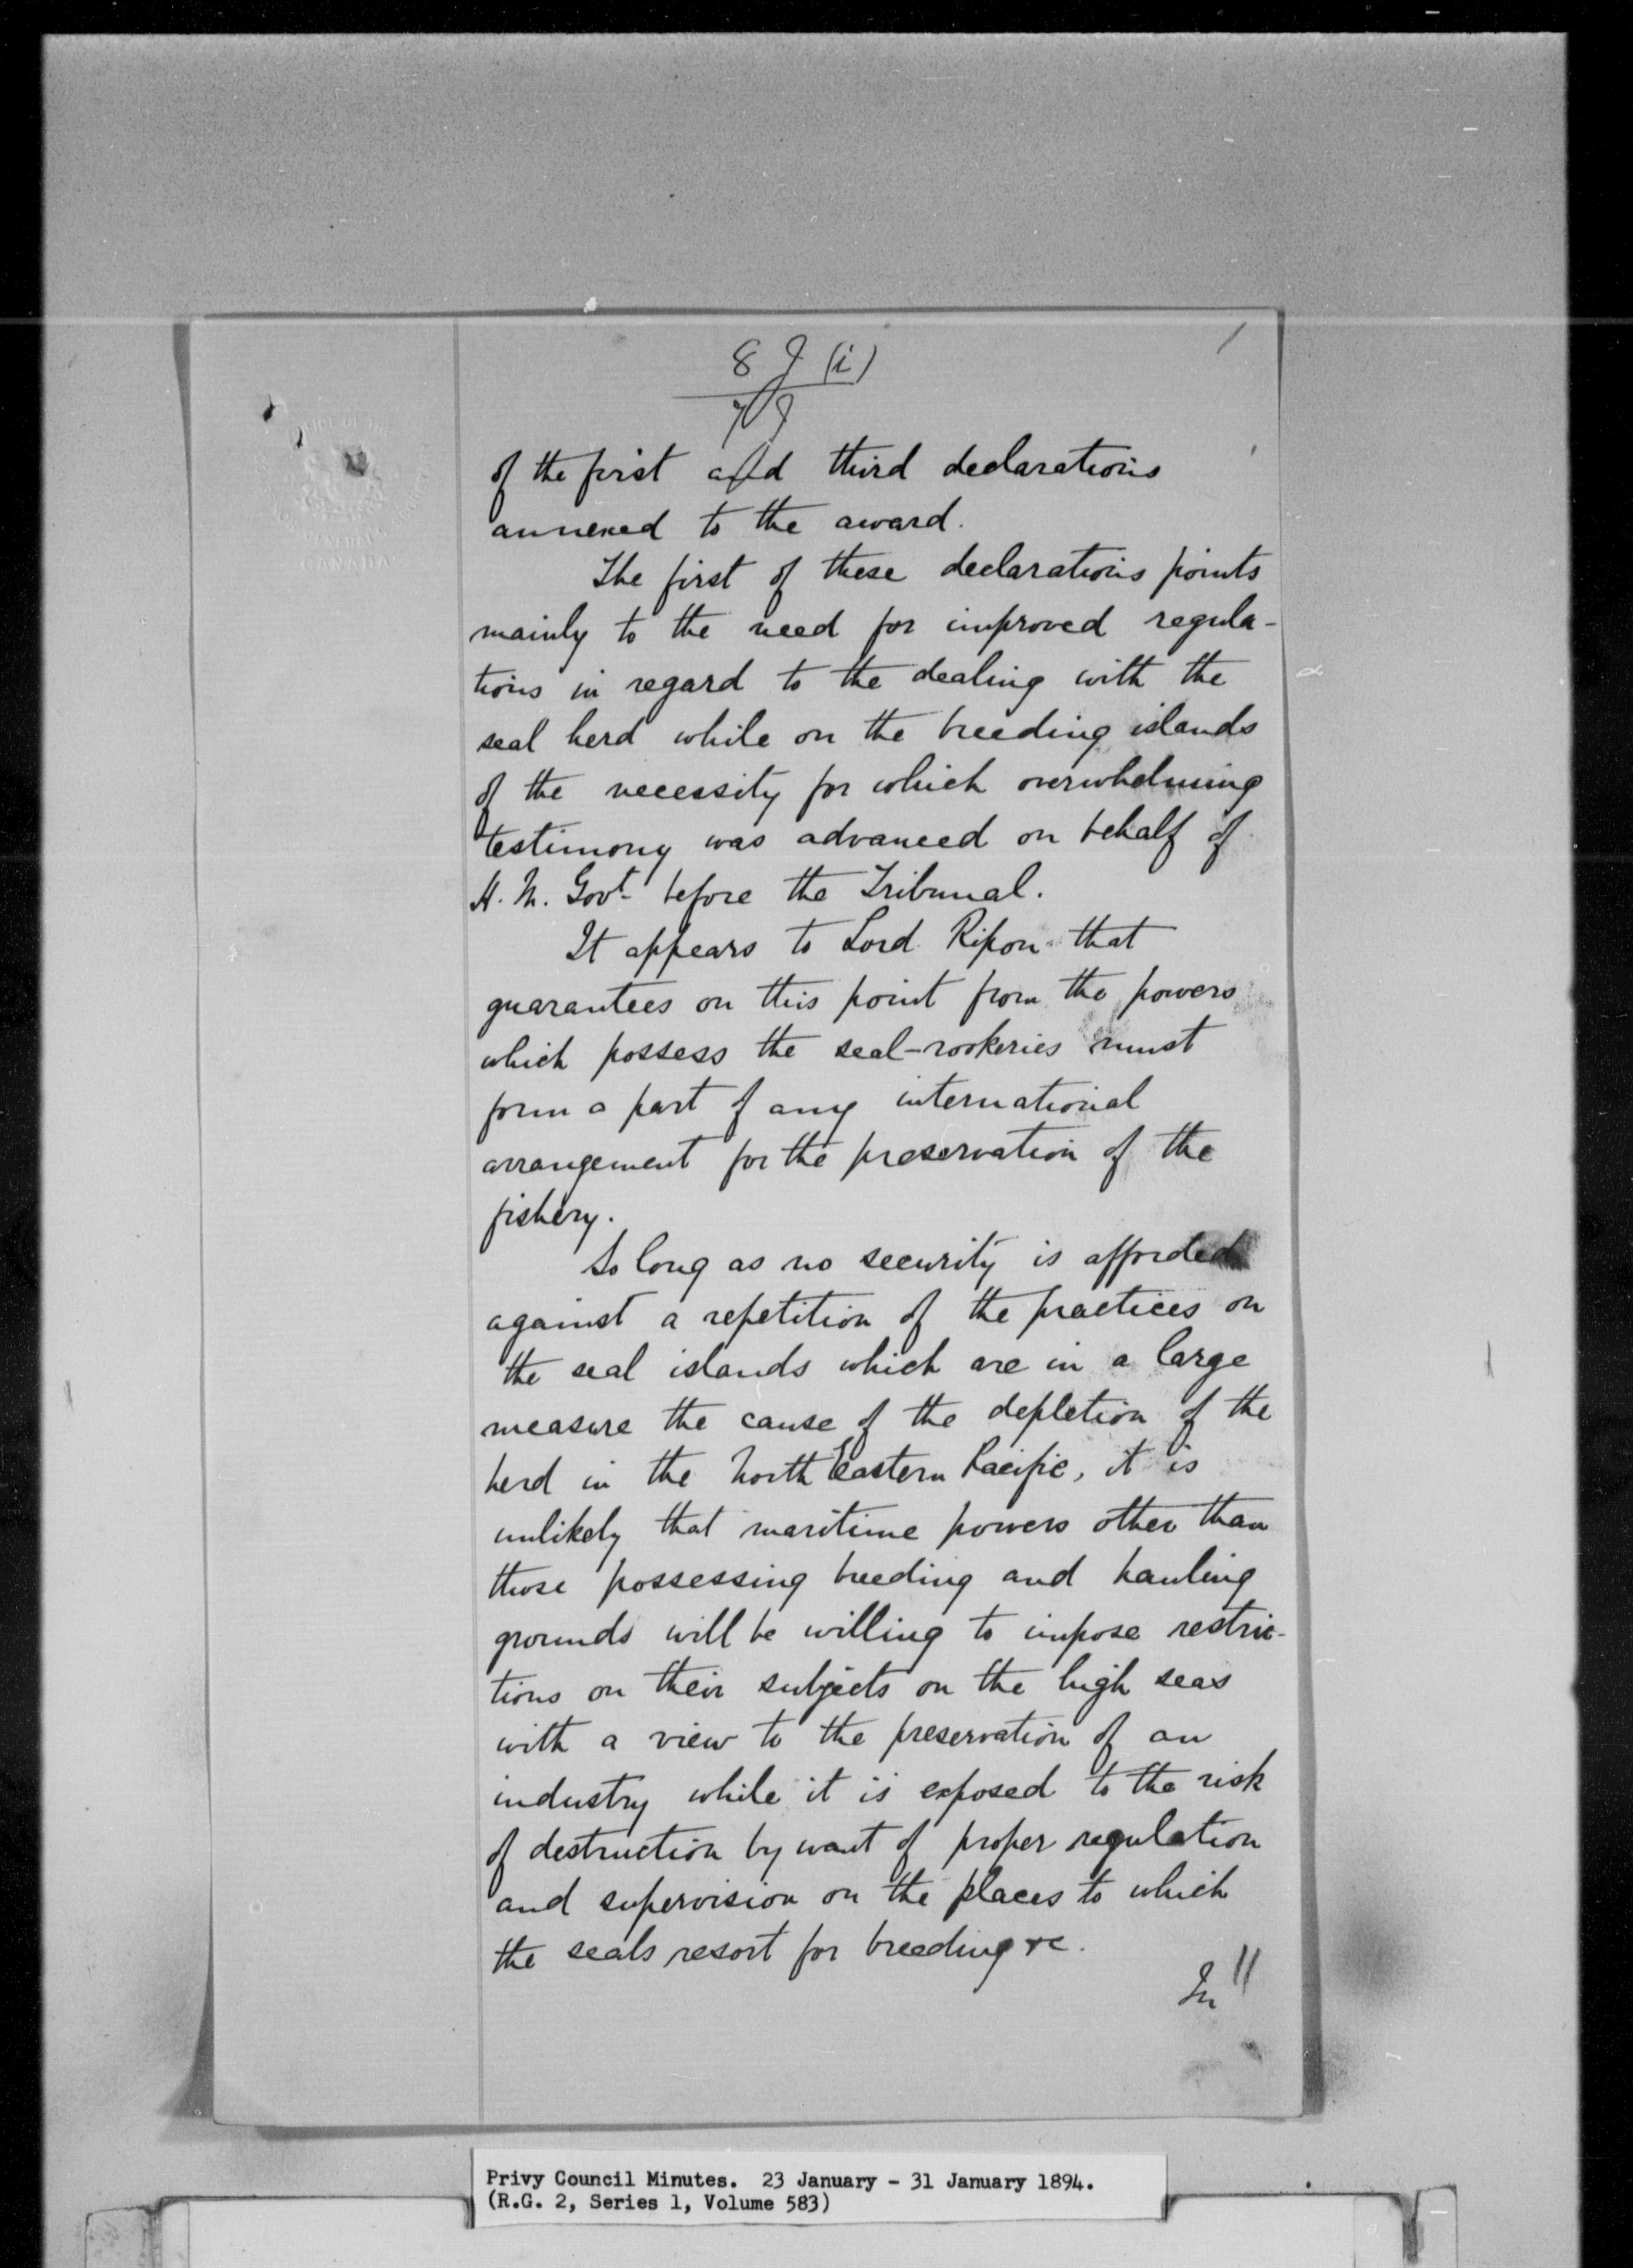 8 J (i)
7 J
of the first and third declarations
annexed to the award.
The first of these declarations points
mainly to the need for improved regula-
tions in regard to the dealing with the
seal herd while on the breeding islands
of the necessity for which overwhelming
testimony was advanced on behalf of
H. M. Govt. before the Tribunal.
It appears to Lord Ripon that
guarantees on this point from the powers
which possess the seal-rookeries must
form a part of any international
arrangement for the preservation of the
fishery.
So long as no security is afforded
against a repetition of the practices on
the seal islands which are in a large
measure the cause of the depletion of the
herd in the North Eastern Pacific, it is
unlikely that maritime powers other than
those possessing breeding and hauling
grounds will be willing to impose restric-
tions on their subjects on the high seas
with a view to the preservation of an
industry while it is exposed to the risk
of destruction by want of proper regulation
and supervision on the places to which
the seals resort for breeding &c.
In
CANADA
Privy Council Minutes. 23 January - 31 January 1894.
(R.G. 2, Series 1, Volume 583)